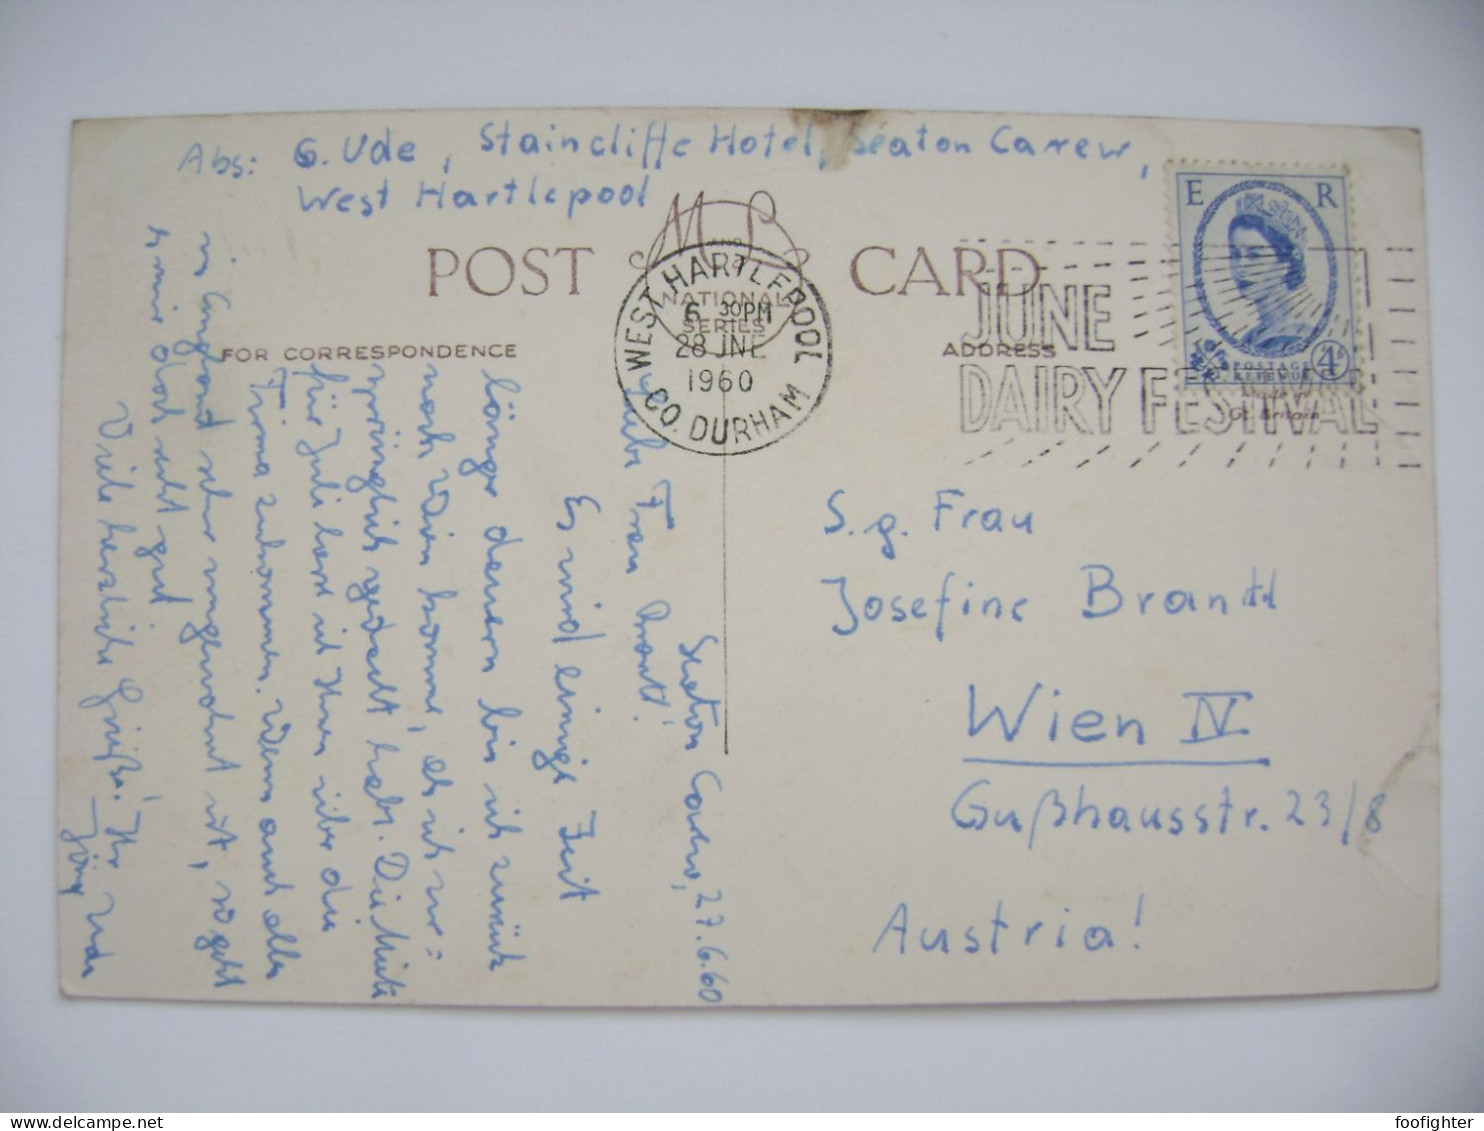 Abs: G. Ude, Staincliffe Hotel, Seaton Carew,
West Hartlepool
POST CARD
M & L
NATIONAL
SERIES
FOR CORRESPONDENCE
ADDRESS
WEST HARTLEPOOL
6 30 PM
28 JNE
1960
CO. DURHAM
JUNE
DAIRY FESTIVAL
E R
POSTAGE
REVENUE
4D
Made in
Gt. Britain
Seaton Carew, 27.6.60
Liebe Frau Brandtl!
Es wird einige Zeit
länger dauern bis ich zurück
nach Wien komme, als ich ur=
sprünglich gedacht habe. Die Miete
für Juli lasse ich Ihnen über die
Firma zukommen. Wenn auch alles
in England sehr ungewohnt ist, so geht
es mir doch recht gut.
Viele herzliche Grüße! Ihr
Jörg Ude
S. g. Frau
Josefine Brandtl
Wien IV
Gußhausstr. 23/8
Austria!
foofighter